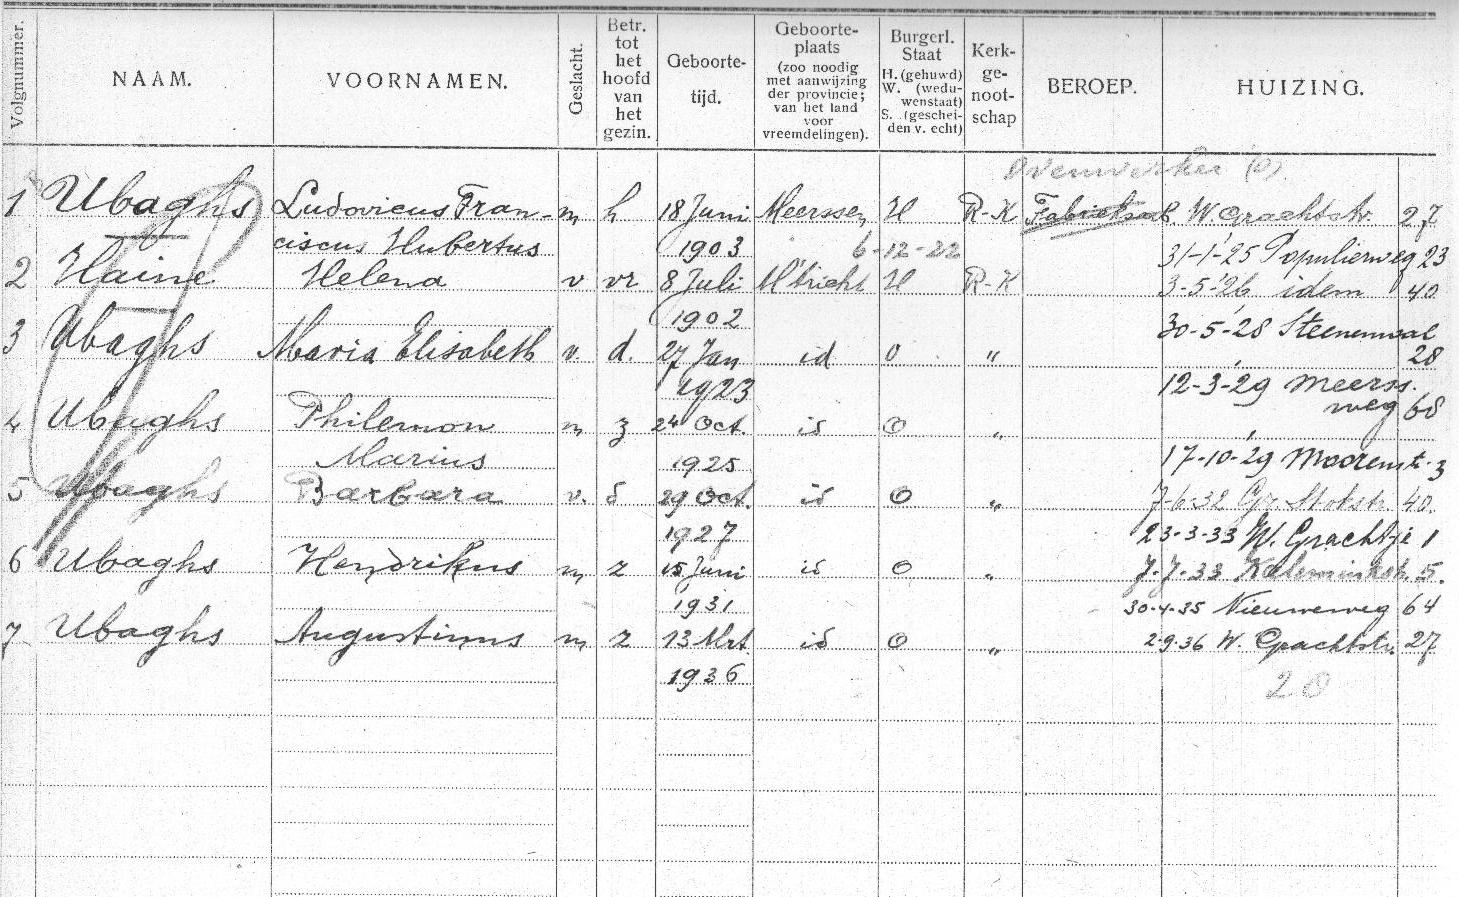 Volgnummer. NAAM. VOORNAMEN. Geslacht. Betr. tot het hoofd van het gezin. Geboorte-tijd. Geboorte-plaats (zoo noodig met aanwijzing der provincie; van het land voor vreemdelingen). Burgerl. Staat H. (gehuwd) W. (wedu-wenstaat) S. (geschei-den v. echt) Kerk-ge-noot-schap BEROEP. HUIZING.
Ovenwerker (P)
1 Ubaghs Ludovicus Fran- m h 18 Juni Meerssen H R-K W. Grachtstr. 27
ciscus Hubertus 1903 6-12-22 31-1-'25 Populierweg 23
2 Haine Helena v vr 8 Juli M'tricht H R-K 3-5-'26 idem 40
1902 30-5-'28 Steenenwal
3 Ubaghs Maria Elisabeth v. d. 27 Jan id O " 28
1923 12-3-'29 Meerss.
weg 68
4 Ubaghs Philemon m z 24 Oct. id O "
Marius 1925 17-10-'29 Moorenstr. 3
5 Ubaghs Barbara v. d 29 Oct. id O " 7-6-32 Gr. Stokstr. 40.
1927 23-3-33 W. Grachtje 1
6 Ubaghs Hendrikus m z 15 Juni id O " 7-7-33 5.
1931 30-4-35 Nieuweweg 64
7 Ubaghs Augustinus m z 13 Mrt id O " 2-9-36 W. Grachtstr. 27
1936
20